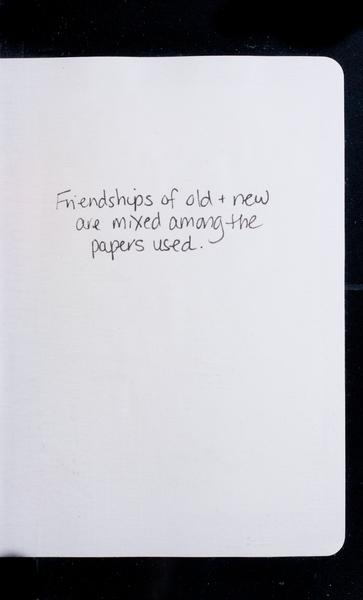 Friendships of old + new
are mixed among the
papers used.